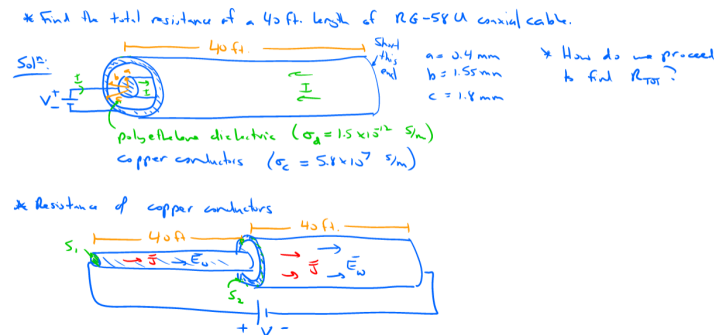 * Find the total resistance of a 40 ft. length of RG-58U coaxial cable.
Sol'n:
40 ft.
Short this end
a = 0.4 mm
b = 1.55 mm
c = 1.8 mm
* How do we proceed to find R_TOT?
I
V + -
I
I
polyethelene dielectric (σ_d = 1.5 x 10^-12 S/m)
copper conductors (σ_c = 5.8 x 10^7 S/m)
* Resistance of copper conductors
40 ft
40 ft.
S_1
J̄
Ē_ω
S_2
J̄
Ē_ω
+ V -